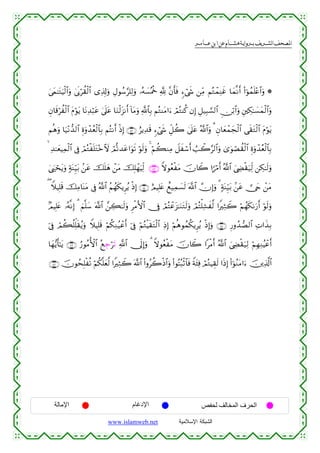 المصحف الشريف برواية هشام عن ابن عامر
۞ وَٱعْلَمُوٓا۟ أَنَّمَا غَنِمْتُم مِّن شَىْءٍ فَأَنَّ لِلَّهِ خُمُسَهُۥ وَلِلرَّسُولِ وَلِذِى ٱلْقُرْبَىٰ وَٱلْيَتَٰمَىٰ
وَٱلْمَسَٰكِينِ وَٱبْنِ ٱلسَّبِيلِ إِن كُنتُمْ ءَامَنتُم بِٱللَّهِ وَمَآ أَنزَلْنَا عَلَىٰ عَبْدِنَا يَوْمَ ٱلْفُرْقَانِ
يَوْمَ ٱلْتَقَى ٱلْجَمْعَانِ ۗ وَٱللَّهُ عَلَىٰ كُلِّ شَىْءٍ قَدِيرٌ إِذْ أَنتُم بِٱلْعُدْوَةِ ٱلدُّنْيَا وَهُم
بِٱلْعُدْوَةِ ٱلْقُصْوَىٰ وَٱلرَّكْبُ أَسْفَلَ مِنكُمْ ۚ وَلَوْ تَوَاعَدتُّمْ لَٱخْتَلَفْتُمْ فِى ٱلْمِيعَٰدِ ۙ
وَلَٰكِن لِّيَقْضِىَ ٱللَّهُ أَمْرًا كَانَ مَفْعُولًا لِّيَهْلِكَ مَنْ هَلَكَ عَنۢ بَيِّنَةٍ وَيَحْيَىٰ
مَنْ حَىَّ عَنۢ بَيِّنَةٍ ۗ وَإِنَّ ٱللَّهَ لَسَمِيعٌ عَلِيمٌ إِذْ يُرِيكَهُمُ ٱللَّهُ فِى مَنَامِكَ قَلِيلًا ۖ
وَلَوْ أَرَىٰكَهُمْ كَثِيرًا لَّفَشِلْتُمْ وَلَتَنَٰزَعْتُمْ فِى ٱلْأَمْرِ وَلَٰكِنَّ ٱللَّهَ سَلَّمَ ۗ إِنَّهُۥ عَلِيمٌۢ
بِذَاتِ ٱلصُّدُورِ وَإِذْ يُرِيكُمُوهُمْ إِذِ ٱلْتَقَيْتُمْ فِىٓ أَعْيُنِكُمْ قَلِيلًا وَيُقَلِّلُكُمْ فِىٓ
أَعْيُنِهِمْ لِيَقْضِىَ ٱللَّهُ أَمْرًا كَانَ مَفْعُولًا ۗ وَإِلَى ٱللَّهِ تَرْجِعُ ٱلْأُمُورُ يَٰٓأَيُّهَا
ٱلَّذِينَ ءَامَنُوٓا۟ إِذَا لَقِيتُمْ فِئَةً فَٱثْبُتُوا۟ وَٱذْكُرُوا۟ ٱللَّهَ كَثِيرًا لَّعَلَّكُمْ تُفْلِحُونَ
الحرف المخالف لحفص الإدغام الإمالة
الشبكة الإسلامية www.islamweb.net